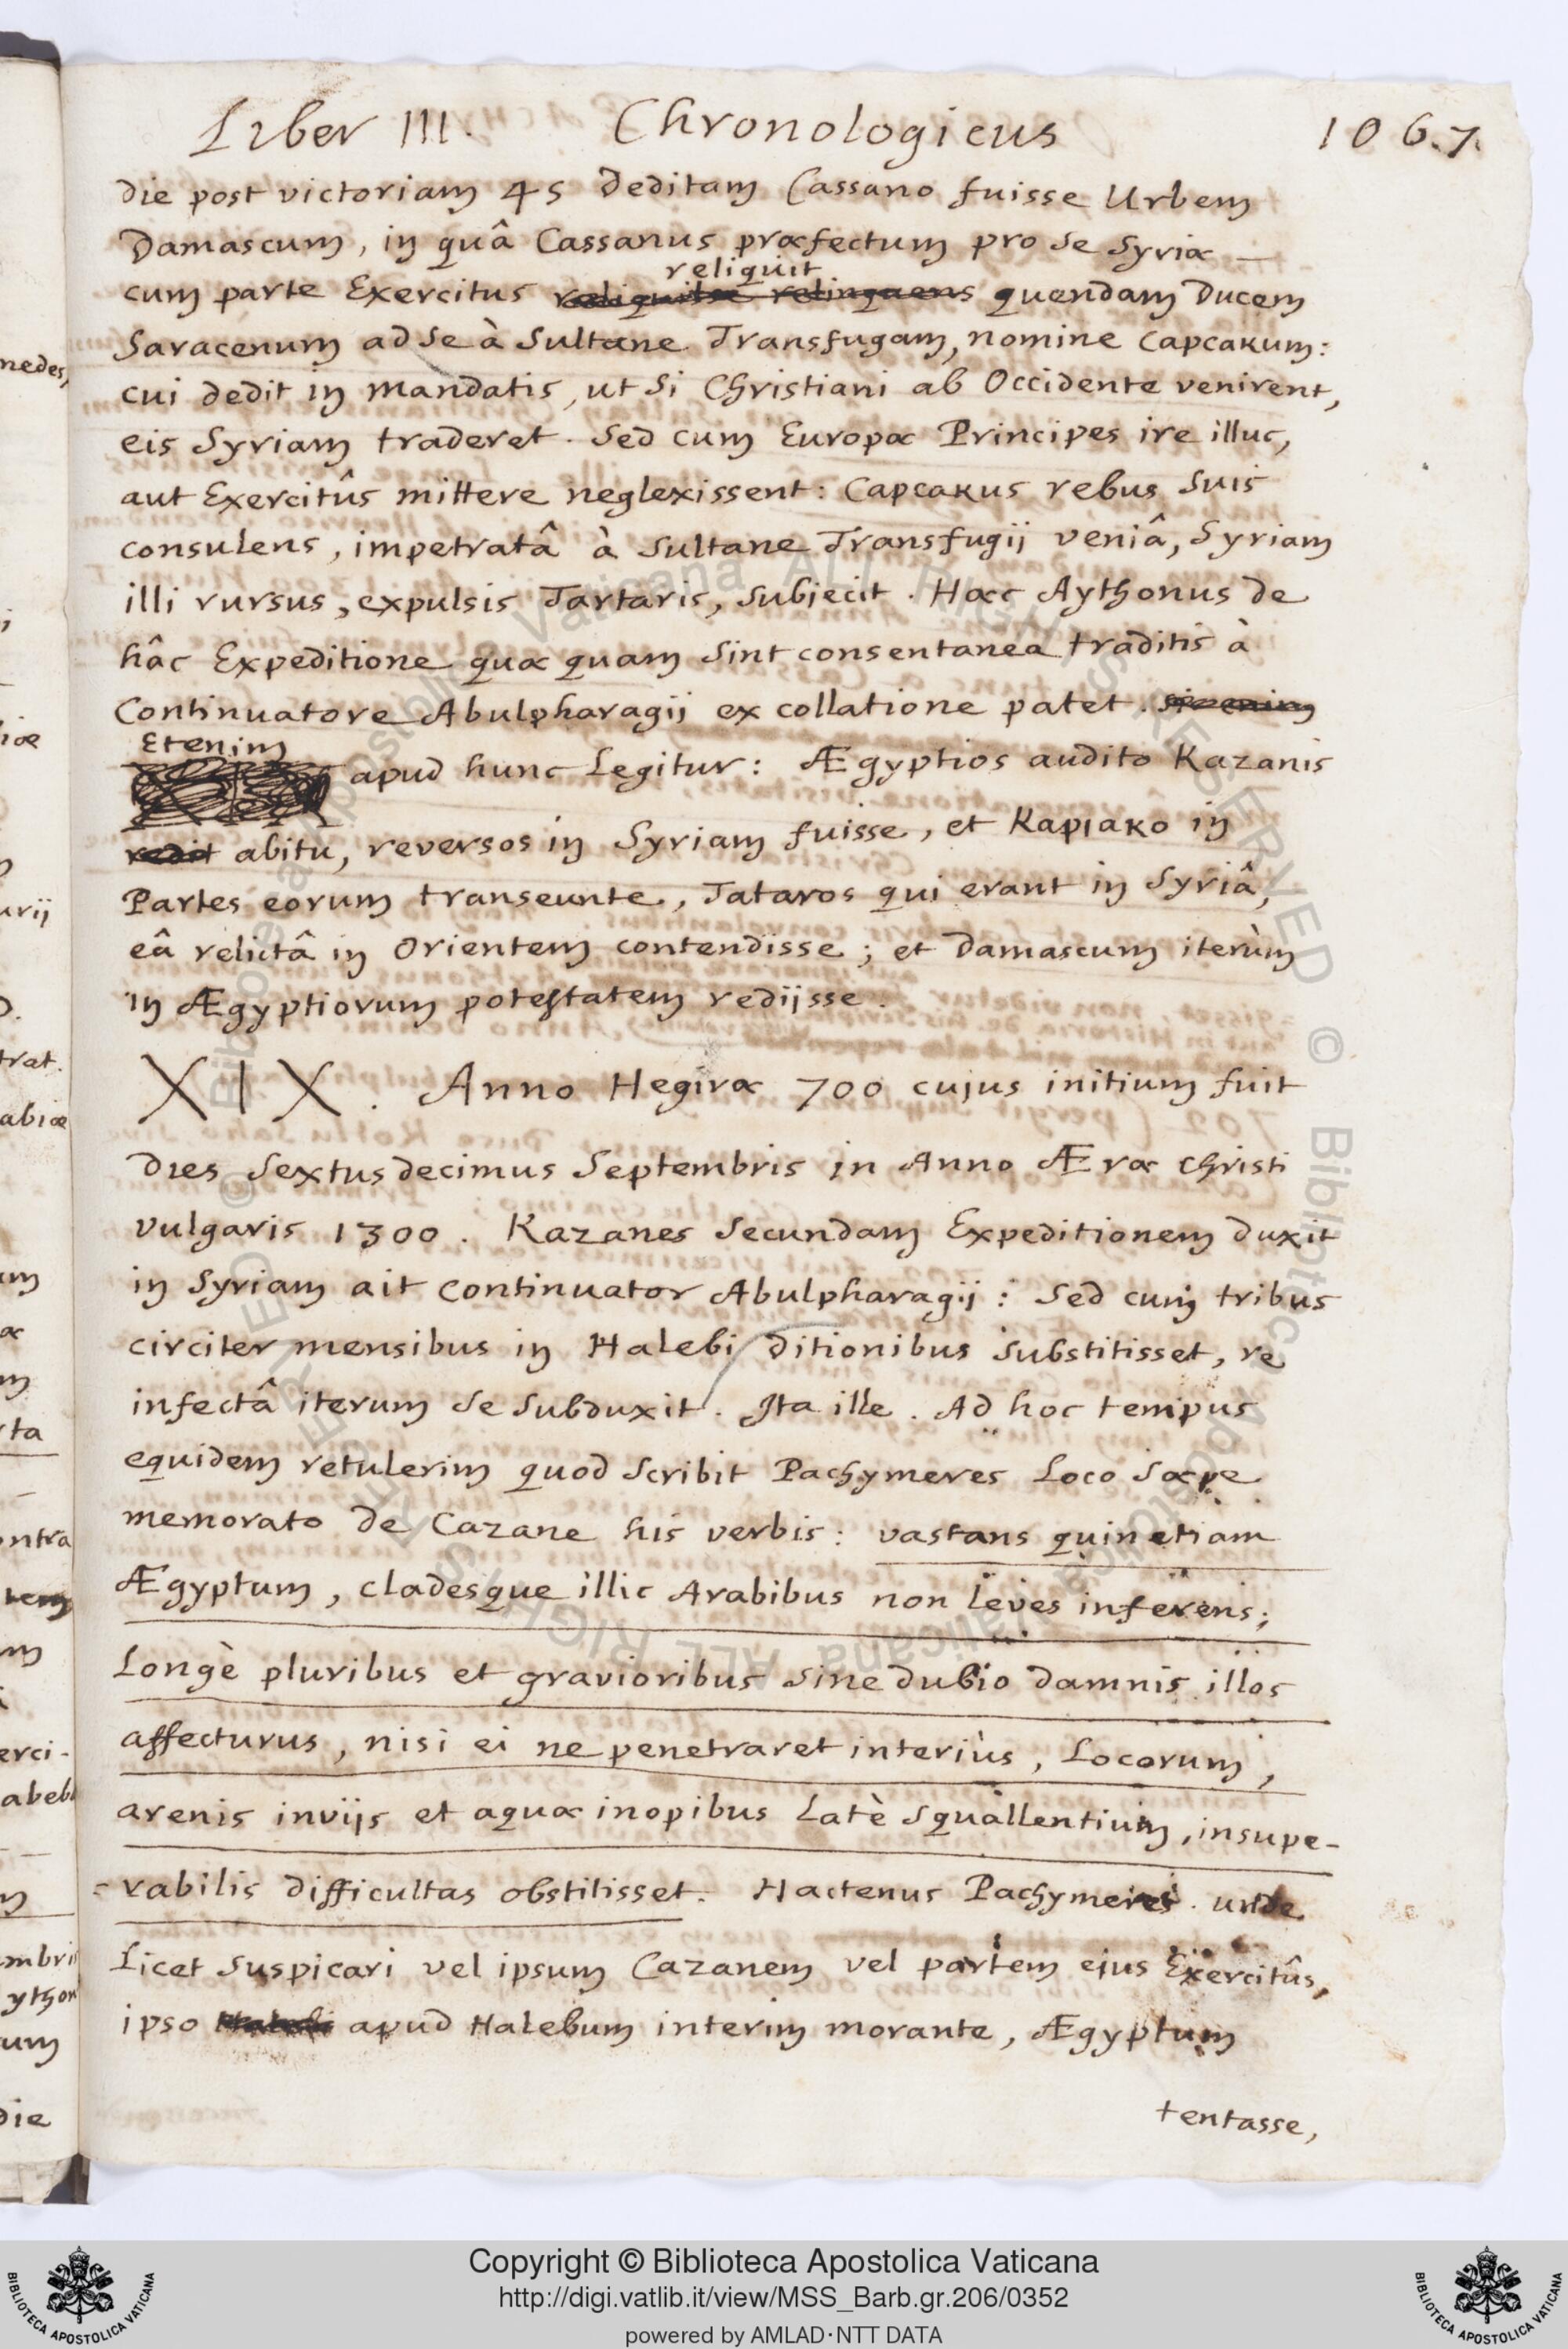 Liber III. Chronologicus 106.7.
die post victoriam 45 deditam Cassano fuisse Urbem
Damascum, in quâ Cassanus præfectum pro se Syriæ
reliquit
cum parte Exercitus reliquisse relinquens quendam Ducem
Saracenum ad se à Sultane Transfugam, nomine Capcakum:
cui dedit in mandatis, ut si Christiani ab Occidente venirent,
eis Syriam traderet. Sed cum Europæ Principes ire illuc,
aut Exercitûs mittere neglexissent: Capcakus rebus suis
consulens, impetratâ à Sultane Transfugij veniâ, Syriam
illi rursus, expulsis Tartaris, subjecit. Hæc Aythonus de
hâc Expeditione quæ quam sint consentanea traditis à
Continuatore Abulpharagij ex collatione patet.
Etenim
apud hunc legitur: Ægyptios audito Kazanis
abitu, reversos in Syriam fuisse, et Kapjako in
Partes eorum transeunte, Tataros qui erant in Syriâ,
eâ relictâ in Orientem contendisse; et Damascum iterùm
in Ægyptiorum potestatem redijsse.
XIX. Anno Hegiræ 700 cujus initium fuit
dies sextusdecimus Septembris in Anno Æræ Christi
vulgaris 1300. Kazanes secundam Expeditionem duxit
in Syriam ait Continuator Abulpharagij: Sed cum tribus
circiter mensibus in Halebi ditionibus substitisset, re
infectâ iterum se subduxit. Ita ille. Ad hoc tempus
equidem retulerim quod scribit Pachymeres Loco sæpe
memorato de Cazane his verbis: vastans quinetiam
Ægyptum, cladesque illic Arabibus non leves inferens;
Longè pluribus et gravioribus sine dubio damnis illos
affecturus, nisi ei ne penetraret interiùs, Locorum,
arenis invijs et aquæ inopibus Latè squallentium, insupe-
=rabilis difficultas obstitisset. Hactenus Pachymeres. unde
Licet suspicari vel ipsum Cazanem vel partem ejus Exercitûs,
ipso apud Halebum interim morante, Ægyptum
tentasse,
Copyright © Biblioteca Apostolica Vaticana
http://digi.vatlib.it/view/MSS_Barb.gr.206/0352
powered by AMLAD·NTT DATA